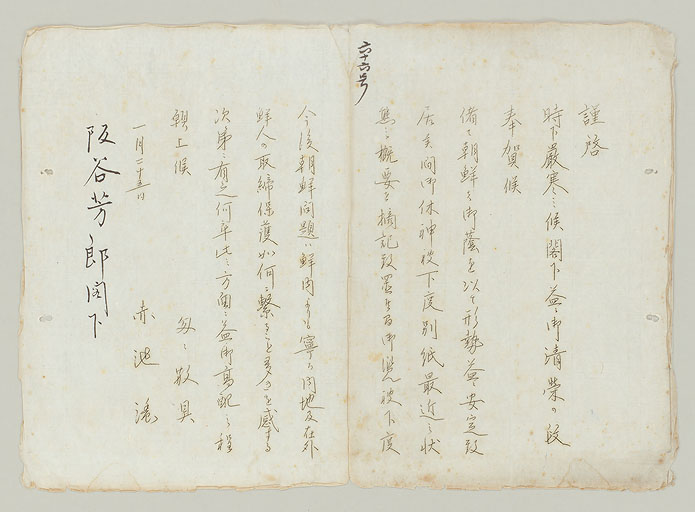 六十六号
謹啓
時下厳寒之候閣下益々御清栄の段
奉賀候
偖て朝鮮も御蔭を以て形勢益々安定致
居候間御休神被下度別紙最近之状
態之概要を摘記致置候間御覧被下度
今後朝鮮問題ハ鮮内よりも寧ろ内地及在外
鮮人の取締保護如何ニ繋ること多きを感する
次第ニ有之何卒此之方面ニ益御高配之程
願上候
匆々敬具
一月二十五日
赤池濃
阪谷芳郎閣下